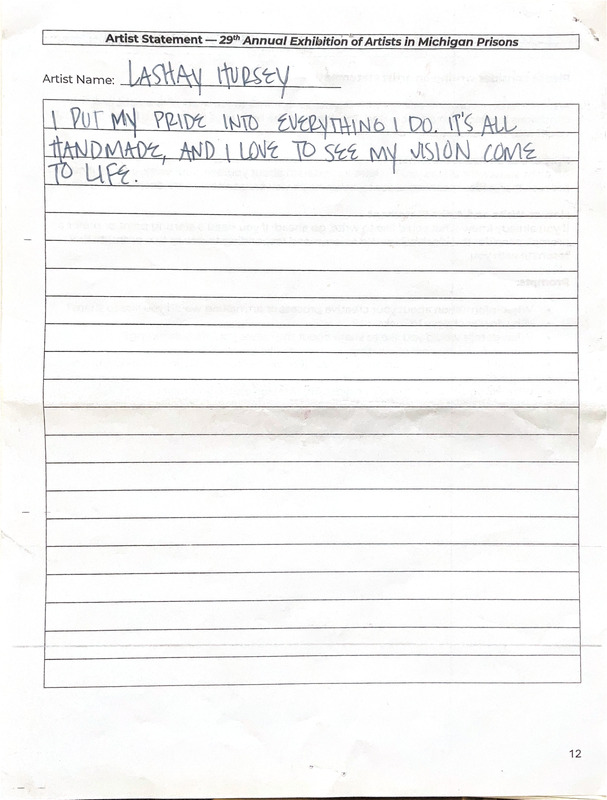 Artist Statement — 29th Annual Exhibition of Artists in Michigan Prisons
Artist Name: LASHAY HURSEY
I PUT MY PRIDE INTO EVERYTHING I DO. IT'S ALL
HANDMADE, AND I LOVE TO SEE MY VISION COME
TO LIFE.
12